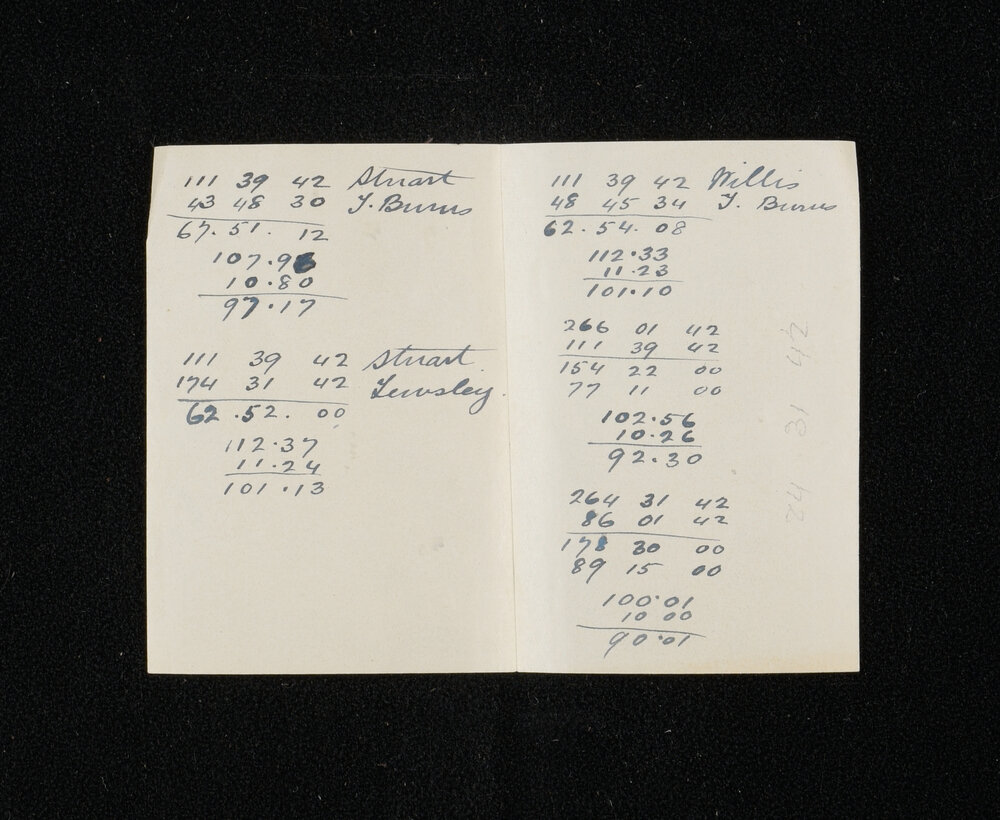 111 39 42 Stuart
43 48 30 T. Burns
67. 51. 12
107.98
10.80
97.17
111 39 42 Stuart
174 31 42 Tewsley
62 .52. 00
112.37
11.24
101.13
111 39 42 Willis
48 45 34 T. Burns
62. 54. 08
112.33
11.23
101.10
266 01 42
111 39 42
154 22 00
77 11 00
102.56
10.26
92.30
264 31 42
86 01 42
178 30 00
89 15 00
100.01
10 00
90.01
31 42